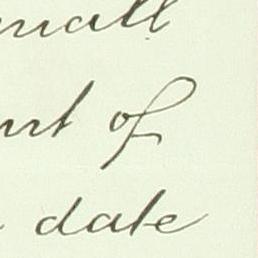 small
nt of
date